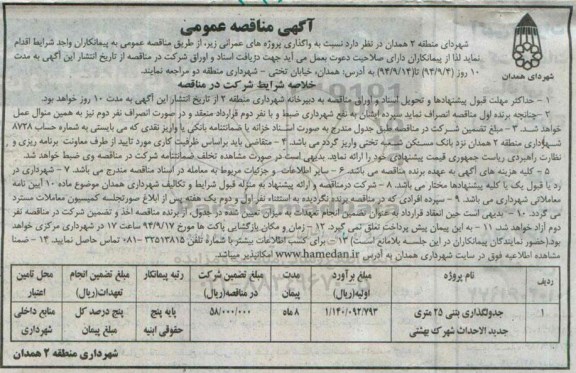 آگهی مناقصه عمومی
شهرداری منطقه ۲ همدان در نظر دارد نسبت به واگذاری پروژه های عمرانی زیر، از طریق مناقصه عمومی به پیمانکاران واجد شرایط اقدام
نماید لذا از پیمانکاران دارای صلاحیت دعوت بعمل می آید جهت دریافت اسناد و اوراق شرکت در مناقصه از تاریخ انتشار این آگهی به مدت
۱۰ روز (۹۴/۹/۴) تا (۹۴/۹/۱۴) به آدرس: همدان، خیابان تختی - شهرداری منطقه دو مراجعه نمایند.
شهرداری همدان
خلاصه شرایط شرکت در مناقصه
۱ - حداکثر مهلت قبول پیشنهادها و تحویل اسناد و اوراق مناقصه به دبیرخانه شهرداری منطقه ۲ از تاریخ انتشار این آگهی به مدت ۱۰ روز خواهد بود.
۲ - چنانچه برنده اول مناقصه انصراف نماید سپرده ایشان به نفع شهرداری ضبط و با نفر دوم قرارداد منعقد و در صورت انصراف نفر دوم نیز به همین منوال عمل
خواهد شد. ۳ - مبلغ تضمین شرکت در مناقصه طبق جدول مندرج به صورت اسناد خزانه یا ضمانتنامه بانکی یا واریز نقدی که می بایستی به شماره حساب ۸۷۲۸
شهرداری منطقه ۲ همدان نزد بانک مسکن شعبه تختی واریز گردد می باشد. ۴ - متقاضی باید براساس ظرفیت کاری مورد تایید از طرف معاونت برنامه ریزی و
نظارت راهبردی ریاست جمهوری قیمت پیشنهادی خود را ارائه نماید. بدیهی است در صورت مشاهده تخلف ضمانتنامه شرکت در مناقصه وی ضبط خواهد شد.
۵ - کلیه هزینه های آگهی به عهده برنده مناقصه می باشد. ۶ - سایر اطلاعات و جزئیات مربوط به معامله در اسناد مناقصه مندرج می باشد. ۷ - شهرداری در
رد یا قبول یک یا کلیه پیشنهادها مختار می باشد. ۸ - شرکت در مناقصه و ارائه پیشنهاد به منزله قبول شرایط و تکالیف شهرداری همدان موضوع ماده ۱۰ آیین نامه
معاملاتی شهرداری می باشد. ۹ - سپرده افرادی که در مناقصه برنده نگردیده به استثناء نفر اول و دوم یک هفته پس از ابلاغ صورتجلسه کمیسیون معاملات مسترد
می گردد. ۱۰ - بدیهی است حین انعقاد قرارداد به عنوان تضمین انجام تعهدات به میزان تعیین شده در جدول، از برنده مناقصه اخذ و تضمین شرکت در مناقصه نفر
دوم آزاد خواهد شد. ۱۱ - به این پیمان پیش پرداخت تعلق نمی گیرد. ۱۲ - زمان و مکان بازگشایی پاکت ها مورخ ۹۴/۹/۱۷ ساعت ۱۷ در شهرداری مرکزی خواهد
بود.(حضور نمایندگان پیمانکاران در این جلسه بلامانع است) ۱۳ - برای کسب اطلاعات بیشتر با شماره تلفن ۳۲۵۱۳۸۱۵-۰۸۱ تماس حاصل نمایید. ۱۴ - ضمنا
مشاهده اطلاعیه فوق در سایت شهرداری همدان به آدرس www.hamedan.ir امکانپذیر میباشد.
ردیف | نام پروژه | مبلغ برآورد اولیه(ریال) | مدت پیمان | مبلغ تضمین شرکت در مناقصه(ریال) | رتبه پیمانکار | مبلغ تضمین انجام تعهدات(ریال) | محل تامین اعتبار
۱ | جدولگذاری بتنی ۲۵ متری جدید الاحداث شهرک بهشتی | ۱/۱۴۰/۰۹۲/۷۹۳ | ۸ ماه | ۵۸/۰۰۰/۰۰۰ | پایه پنج حقوقی ابنیه | پنج درصد کل مبلغ پیمان | منابع داخلی شهرداری
شهرداری منطقه ۲ همدان